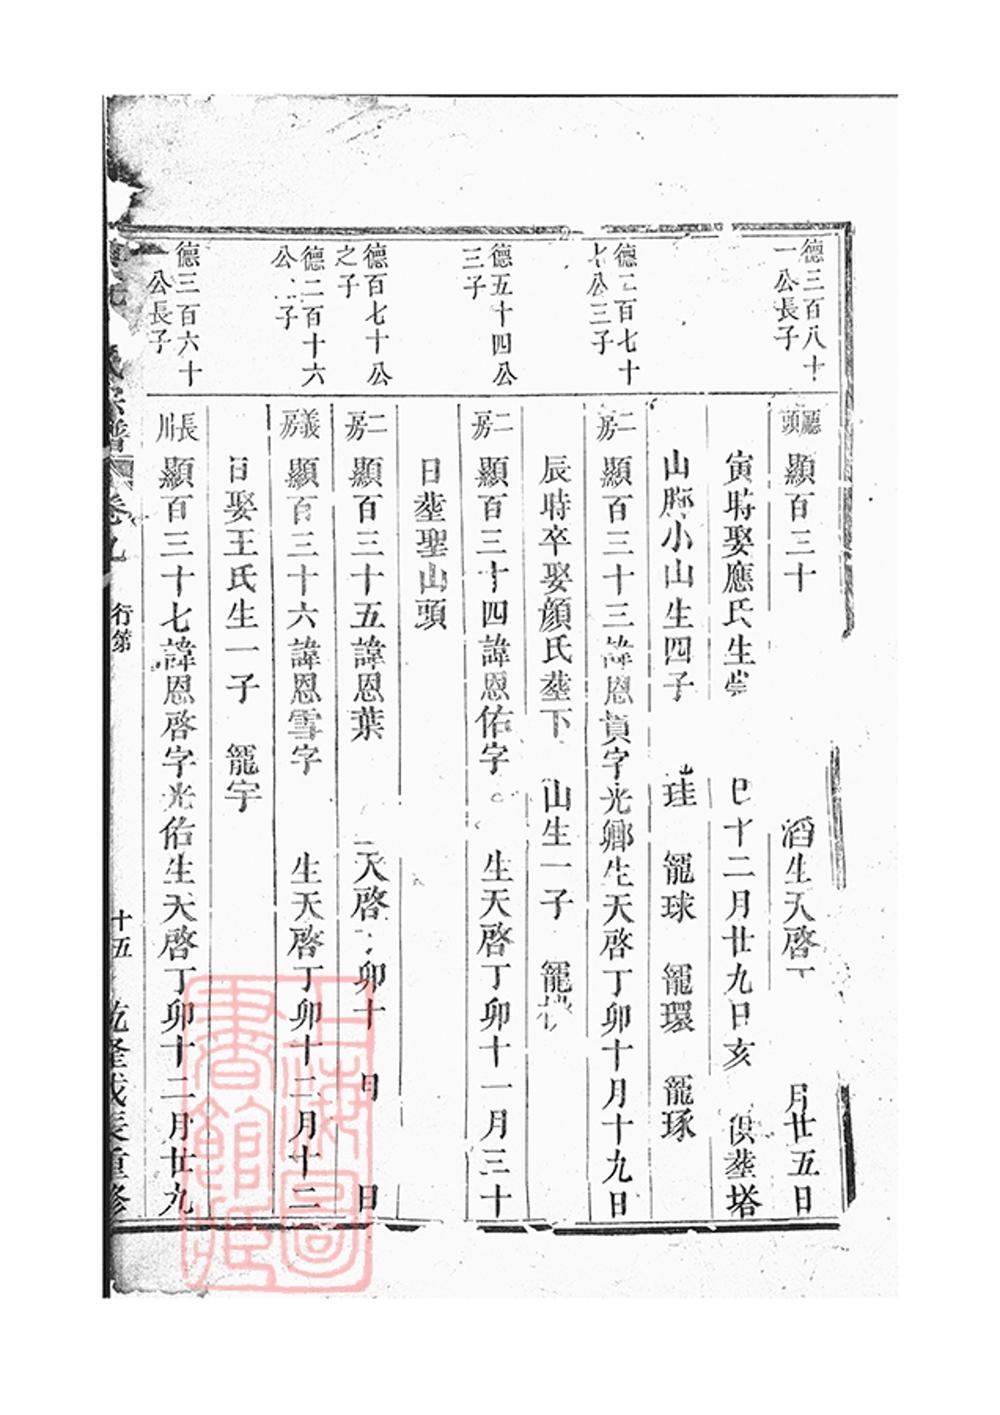 德三百八十
一公長子
廳頭
顯百三十
滔生天啓
月廿五日
寅時娶應氏生
巳十二月廿九日亥
俱塟塔
山脚小山生四子
珪
寵球
寵環
寵琢
德二百七十
七公三子
二房
顯百三十三諱恩貞字光卿生天啓丁卯十月十九日
辰時卒娶顔氏塟下
山生一子
寵
德五十四公
三子
二房
顯百三十四諱恩佑字
生天啓丁卯十一月三十
日塟聖山頭
德百七十公
之子
二房
顯百三十五諱恩葉
天啓
卯十
月
日
德二百十六
公二子
義房
顯百三十六諱恩雪字
生天啓丁卯十二月十二
日娶王氏生一子
寵宇
德三百六十
一公長子
長川
顯百三十七諱恩啓字光佑生天啓丁卯十二月廿九
氏宗譜
卷九
行第
十五
乾隆戊辰重修
上海圖
書館藏